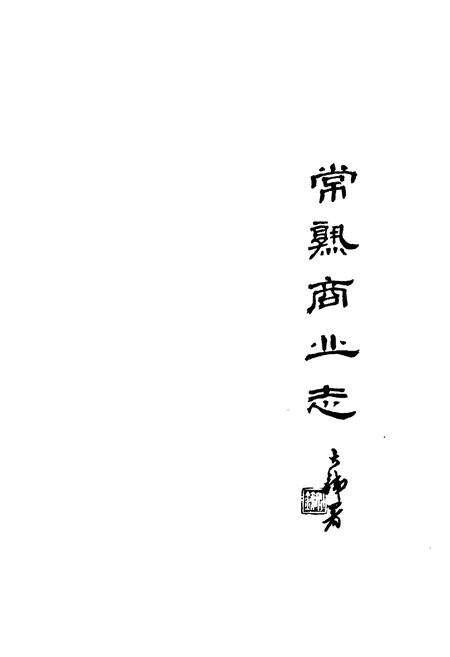 常熟商业志